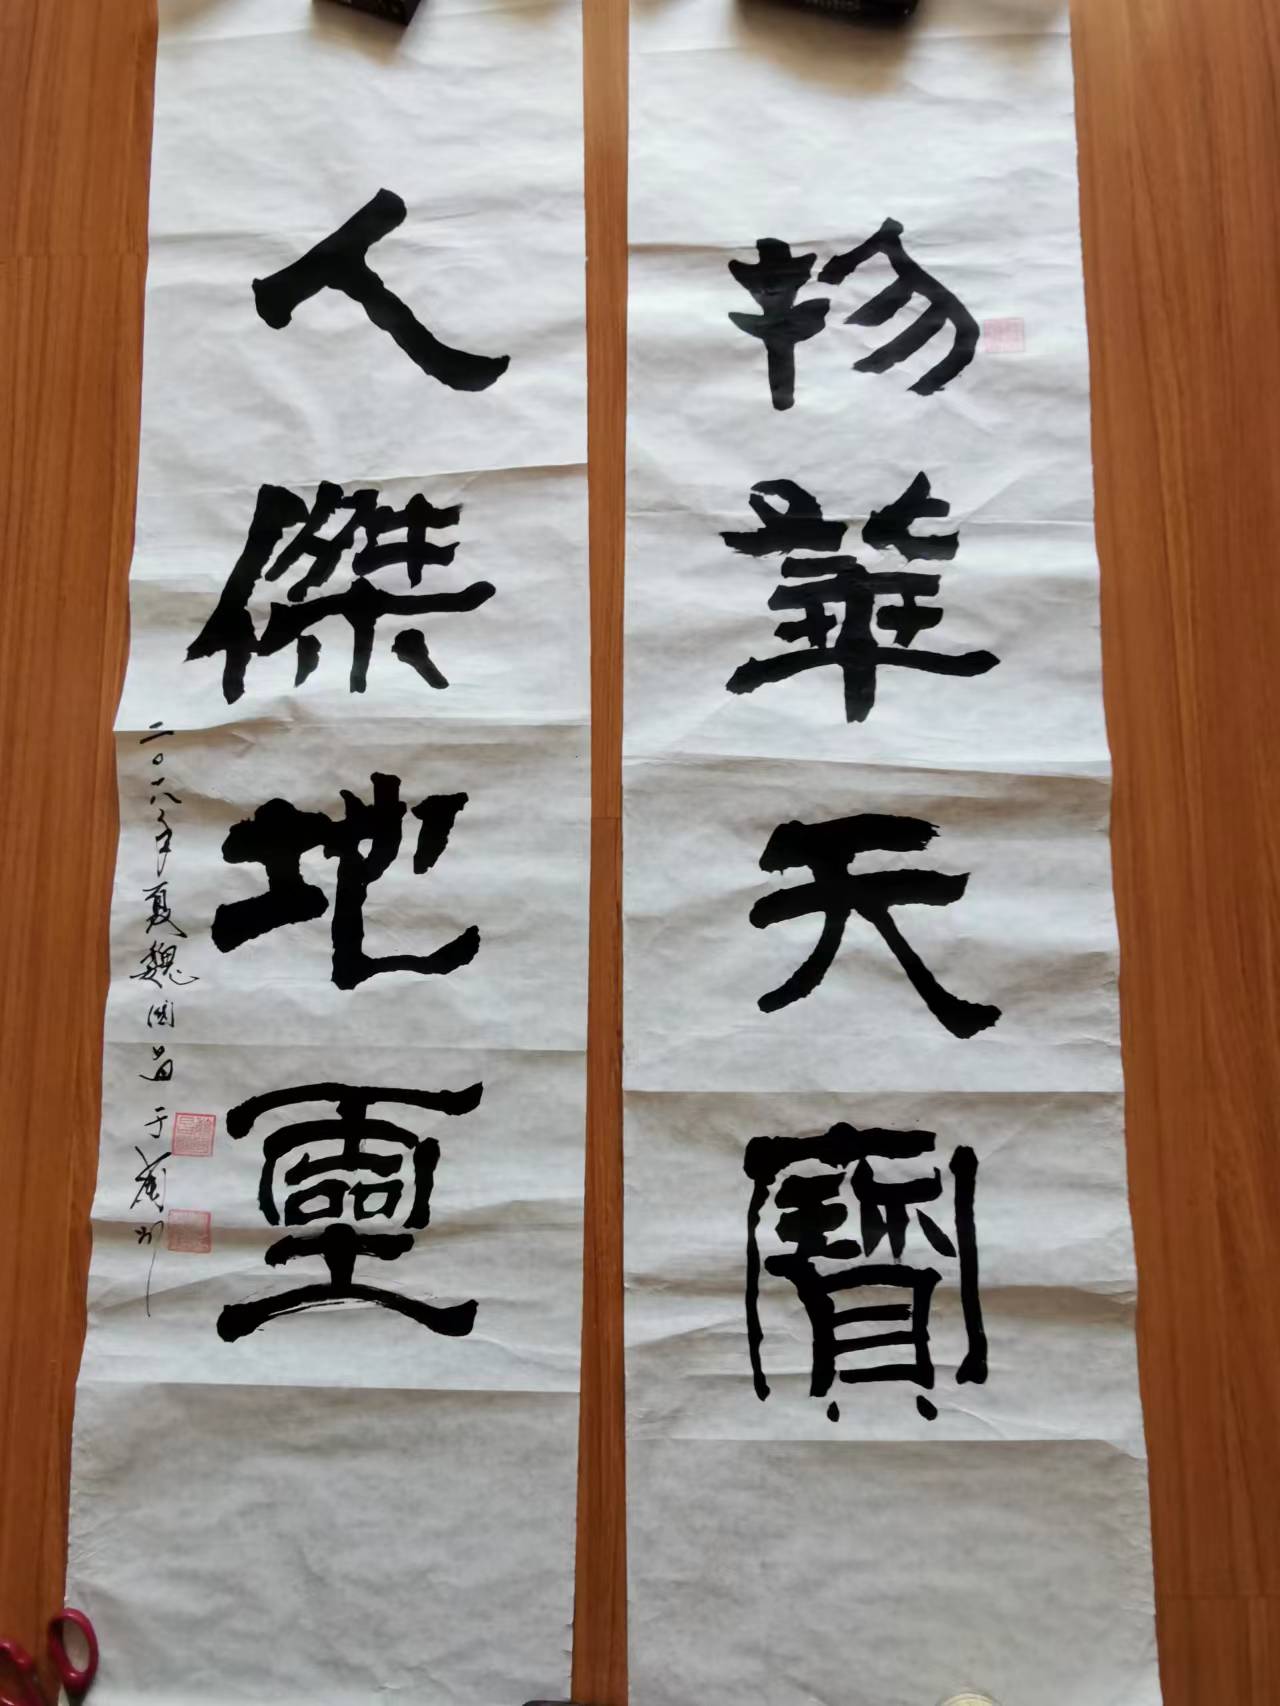 物華天寶
人傑地靈
二〇一八年夏魏国
于蘭州